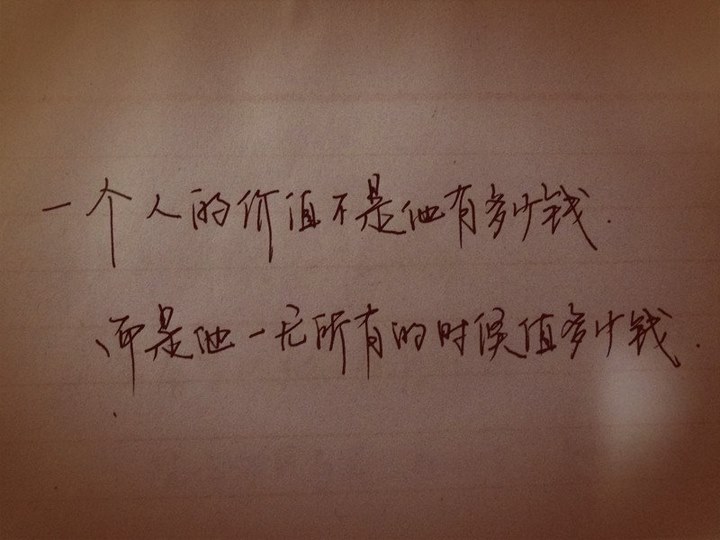 一个人的价值不是他有多少钱.
而是他一无所有的时候值多少钱.